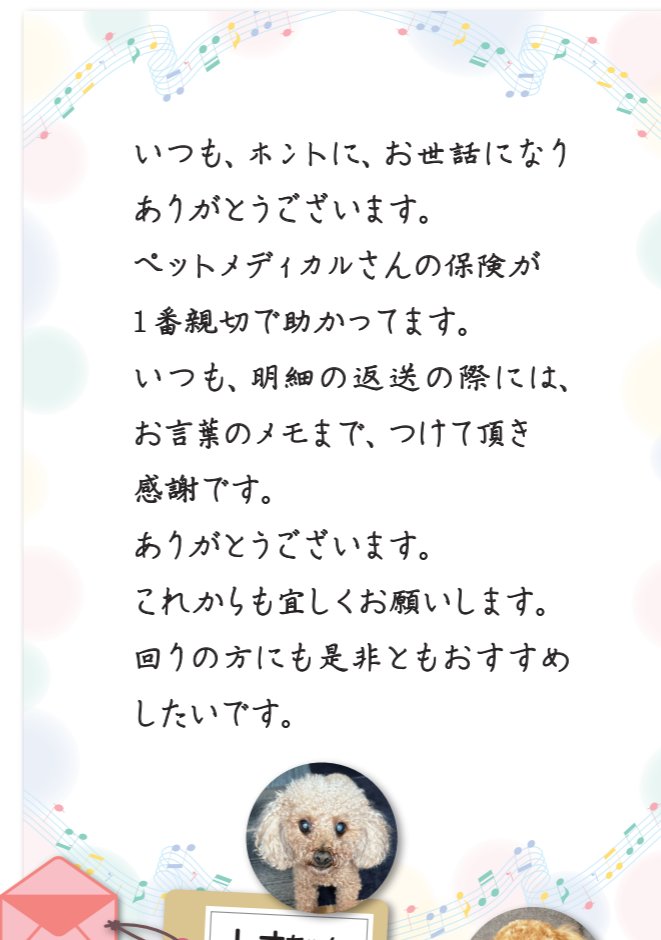 いつも、ホントに、お世話になり
ありがとうございます。
ペットメディカルさんの保険が
1番親切で助かってます。
いつも、明細の返送の際には、
お言葉のメモまで、つけて頂き
感謝です。
ありがとうございます。
これからも宜しくお願いします。
回りの方にも是非ともおすすめ
したいです。